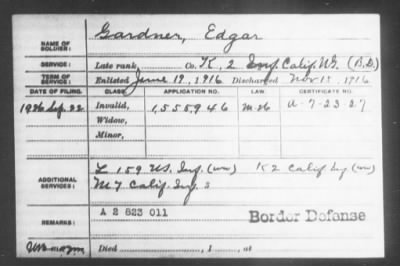 NAME OF SOLDIER: Gardner, Edgar
SERVICE: Late rank, Co. K, 2 Inf. Calif NG. (B.D.)
TERM OF SERVICE: Enlisted June 19, 1916 Discharged Nov 15, 1916
DATE OF FILING. CLASS. APPLICATION NO. LAW. CERTIFICATE NO.
1926 Sep. 22 Invalid, 1,555,946 M-26 A-7-23-27
Widow,
Minor,
ADDITIONAL SERVICES: L 159 US. Inf. (ww) K2 Calif Inf (ww)
M 7 Calif. Inf.
REMARKS: A 2 823 011 Border Defense
Died , 1 , at